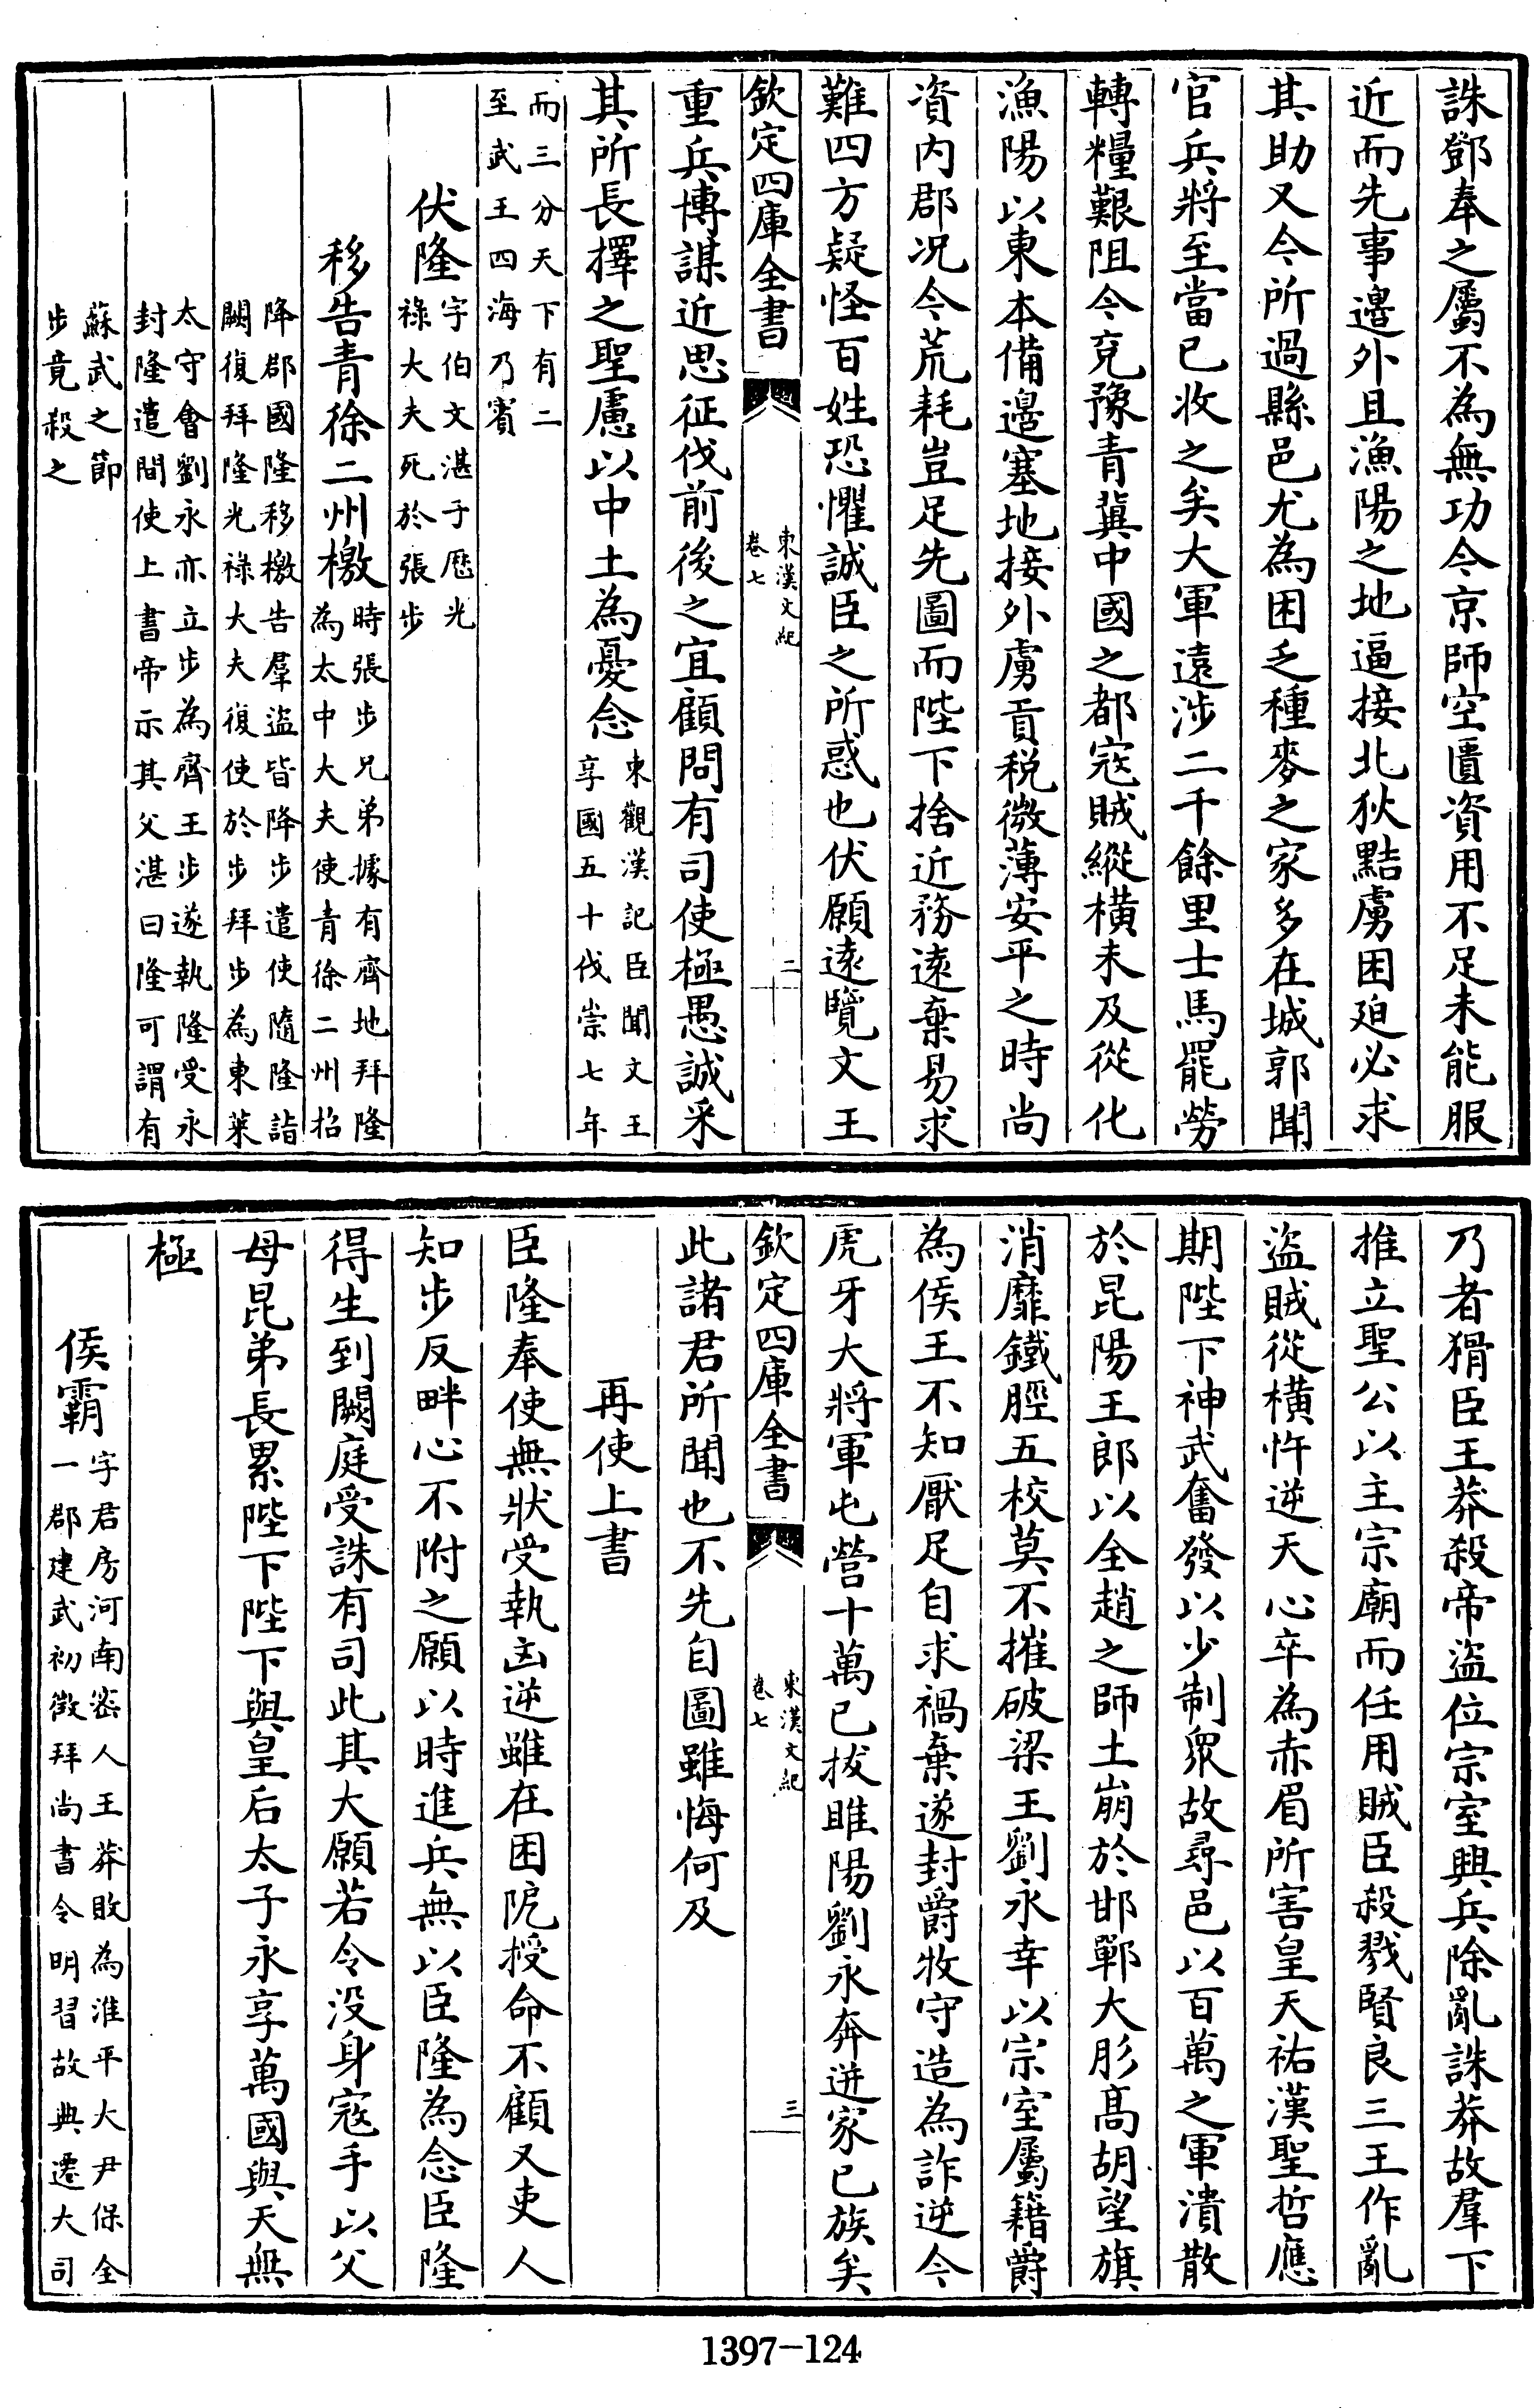 誅鄧奉之屬不為無功今京師空匱資用不足未能服
近而先事邉外且漁陽之地逼接北狄黠虜困迫必求
其助又今所過縣邑尤為困乏種麥之家多在城郭聞
官兵將至當已收之矣大軍遠涉二千餘里士馬罷勞
轉糧艱阻今兗豫青冀中國之都寇賊縱橫未及從化
漁陽以東本備邉塞地接外虜貢税微薄安平之時尚
資内郡况今荒耗豈足先圖而陛下捨近務逺棄易求
難四方疑怪百姓恐懼誠臣之所惑也伏願逺覽文王
欽定四庫全書
東漢文紀
卷七
二
重兵博謀近思征伐前後之宜顧問有司使極愚誠采
其所長擇之聖慮以中土為憂念
東觀漢記臣聞文王
享國五十伐崇七年
而三分天下有二
至武王四海乃賓
伏隆
字伯文湛子歴光
祿大夫死於張步
移告青徐二州檄
時張步兄弟據有齊地拜隆
為太中大夫使青徐二州招
降郡國隆移檄告羣盜皆降步遣使隨隆詣
闕復拜隆光祿大夫復使於步拜步為東萊
太守會劉永亦立步為齊王步遂執隆受永
封隆遣間使上書帝示其父湛曰隆可謂有
蘇武之節
步竟殺之
乃者猾臣王莽殺帝盜位宗室興兵除亂誅莽故羣下
推立聖公以主宗廟而任用賊臣殺戮賢良三王作亂
盜賊從橫忤逆天心卒為赤眉所害皇天祐漢聖哲應
期陛下神武奮發以少制衆故尋邑以百萬之軍潰散
於昆陽王郎以全趙之師土崩於邯鄲大肜髙胡望旗
消靡鐵脛五校莫不摧破梁王劉永幸以宗室屬籍爵
為侯王不知厭足自求禍棄遂封爵牧守造為詐逆今
虎牙大將軍屯營十萬已拔睢陽劉永奔迸家已族矣
欽定四庫全書
東漢文紀
卷七
三
此諸君所聞也不先自圖雖悔何及
再使上書
臣隆奉使無狀受執凶逆雖在困阨授命不顧又吏人
知步反畔心不附之願以時進兵無以臣隆為念臣隆
得生到闕庭受誅有司此其大願若令没身寇手以父
母昆弟長累陛下陛下與皇后太子永享萬國與天無
極
侯霸
字君房河南密人王莽敗為淮平大尹保全
一郡建武初徵拜尚書令明習故典遷大司
1397-124